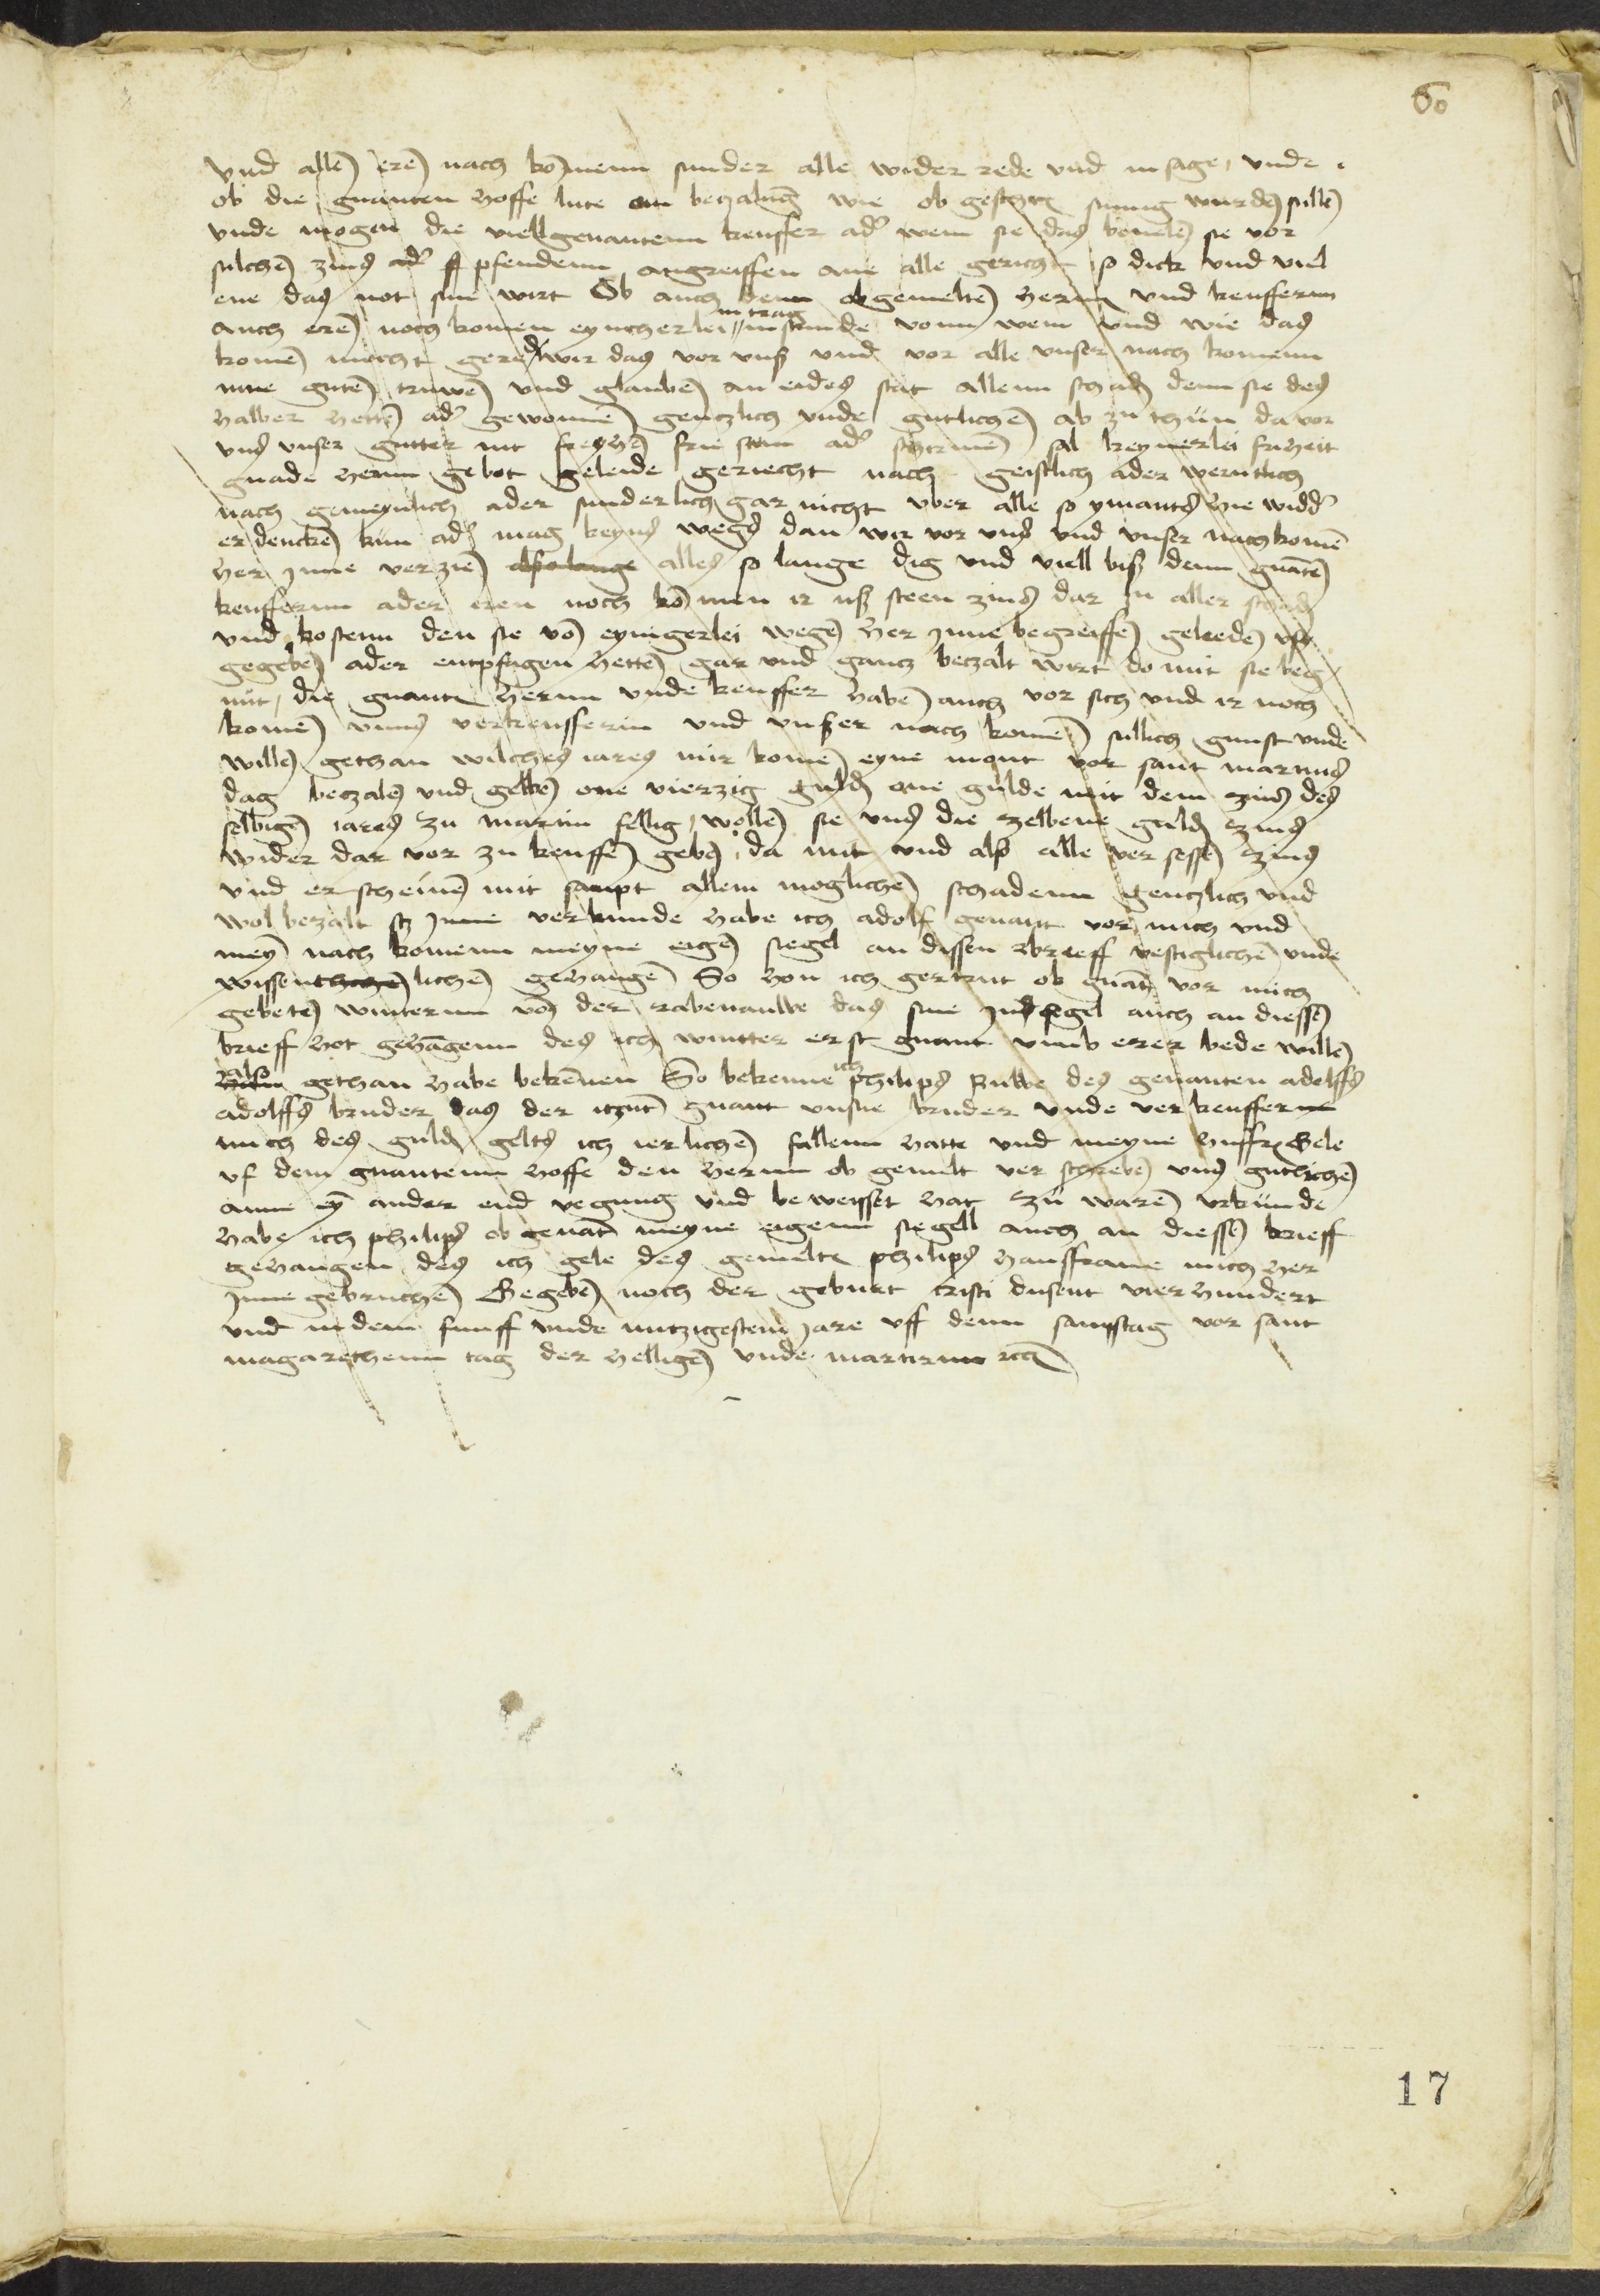 60
vnd allen eren nach komenn sunder alle wider rede vnd in sage vnde
ob die gnanten hoffe lute an beczalung wie ob geschrebe sumig wurden sullen
vnde mogen die viellgenantenn keuffer ader wem sie das beuelen sie vor
sulchen zins ader pfendenn angreiffen ane alle gericht so dick vnd viel
ene das not sin wirt Ob auch denn obgemelten hernn vnd keuffernn
auch eren noch komen eyncherlei in trag in funde vonn wem vnd wie das
komen mucht gereden wir das vor vnß vnd vor alle vnser nach komenn
inne guten truwen vnd glauben an eides stat allenn schaden denn sie des
halber hetten ader gewonnen genczlich vnde gutlichen ab zu thun da vor
vns vnser gutter nit freyhen frie sten ader schirmen sal keynerlei friheit
gnade hernn gebot geleide geriecht nach geistlich ader werntlich
nach gemeynlich ader sunderlich gar nicht vber alle so ymants hie widder
er dencken kun ader mag keyns wegs dan wir vor vns vnd vnser nach komen
her Inne verzien also lange alles so lange dig vnd viell biß denn gnanten
keuffernn ader eren noch komen ir uß steen zins dar zu aller schaden
vnd kostenn den sie von eynigerlei wegen her Inne begreiffen geleden
gegeben ader entpfagen hetten gar vnd gancz beczalt wirt do mit sie beg
nut die gnanten hernn vnde keuffer haben auch vor sich vnd ir noch
komen vnns verkeufferin vnd vnßer nach komen sullich gunst vnde
willen gethan wilches iares mir komen eyne mont vor sant martins
dag beczalen vnd gelten one vierzig gulden one gulde mit dem zins des
selbigen iares zu martin fellig wollen sie vns die zelbene gulden zins
wider dar vor zu keuffen geben da mit vnd alß alle ver sessen zins
vnd er scheinen mit sampt allem moglichen schadenn genczlich vnd
wol bezalt sy Inne verkunde habe ich adolf genant vor mich vnd
meyn nach komenn meyne eigen siegel an dissen brieff vestiglichen vnde
wissentlichen gehangen So hon ich gertrut ob gnant vor mich
gebeten winternn von der rabenauwe das sine Ingsegel auch an diessen
brieff hot gehangenn des ich wintter erst gnant vmb erer bede willen
also gethan habe bekennen So bekenne ich philips des genanten adolffs
adolffs bruder das der itzunt gnant vnsue bruder vnde verkeuffernn
mich des gulden gelts ich ierlichen fallenn hatte vnd meyne hußfr Gele
vf dem gnantenn hoffe den hernn ob gemelt ver schreben vns gutlichen
anne eyn ander end vegung vnd be weysset hat zu waren vrkunde
habe ich philips ob genant meyne eigenn siegell auch an diessen brieff
gehangen des ich gele des gemelten philips haußfrawe mich her
Inne gebruchen Gegeben noch der geburt cristi dusent vierhundert
vnd in dem funff vnde nutzigestem jare vff denn samstag vor sant
magarethenn tag der helligen vnde martirin
17